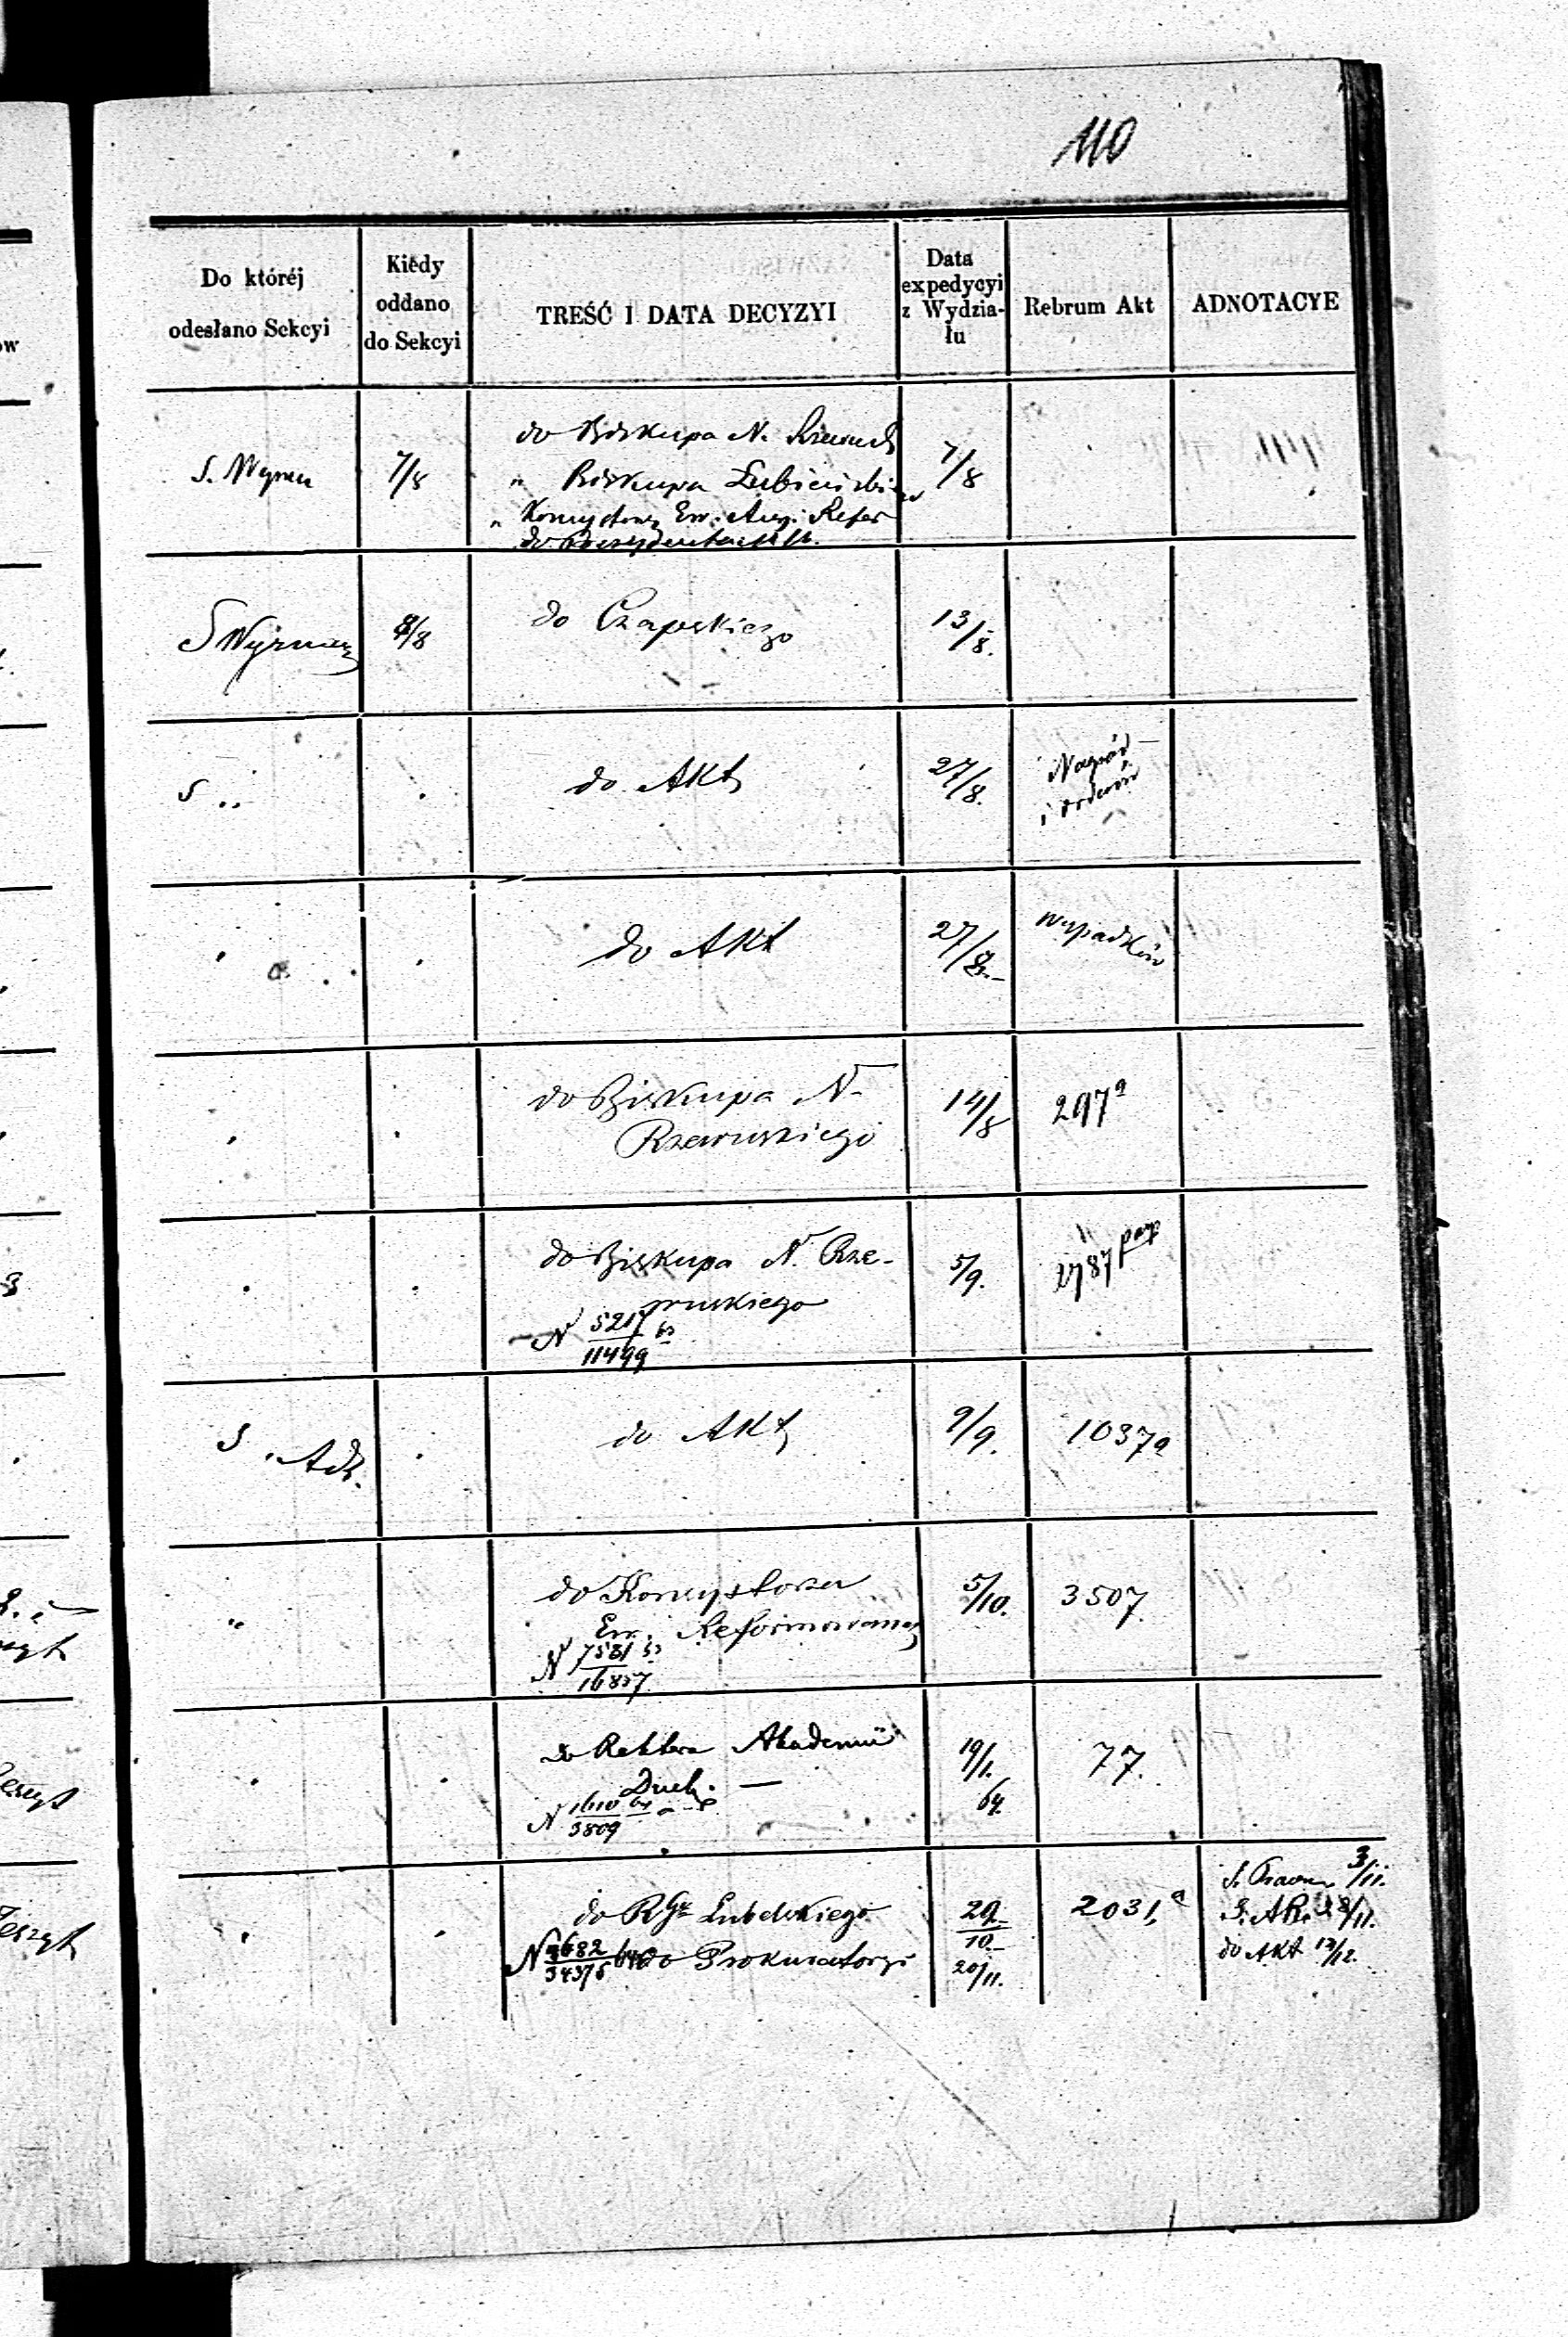 110
Do któréj
odesłano Sekcyi
Kiedy
oddano
do Sekcyi
TREŚĆ I DATA DECYZYI
Data
expedycyi
z Wydzia-
łu
Rebrum Akt
ADNOTACYE
7/8
do Biskupa N.
" Biskupa Łubieński
" Konsystorz Ew. Aug. Refor
7/8
8/8
do Czapskiego
13/8.
S "
do Akt
27/8.
Nagród
i orderów
do Akt
27/8.
wypadków
do Biskupa N.
Rzewuskiego
14/8
297a
do Biskupa N. Rze-
wuskiego
N 5217/11499 63
5/9.
2787
S. Adm.
do Akt
9/9.
1037a
"
do Konsystorza
Ew. Reformowaneg
N 7581/16857
5/10.
3507.
do Rektora Akademii
Duch. —
N 1610/3809 64
19/1.
64.
77.
do RGu Lubelskiego
do Prokuratoryi
29/10
20/11.
2031,a
3/11.
do Akt 12/12.